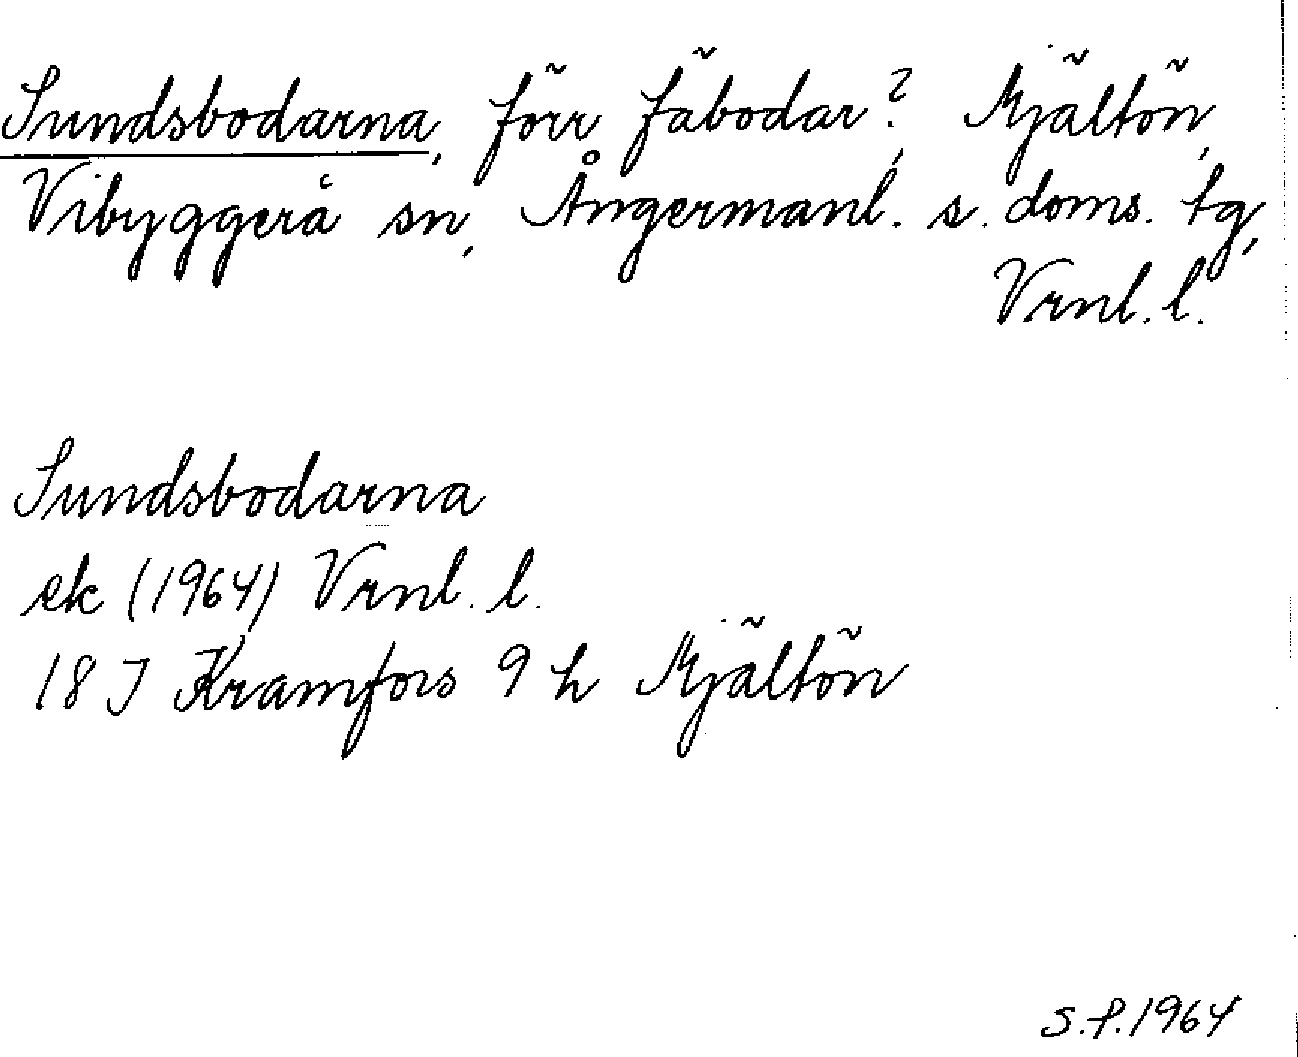 Sundsbodarna, förr fäbodar?, Mjältön,
Vibyggerå sn, Ångermanl. s. doms. tg,
Vrnl. l.
Sundsbodarna
ek (1964) Vrnl. l.
18 J Kramfors 9 h Mjältön
S.P.1964